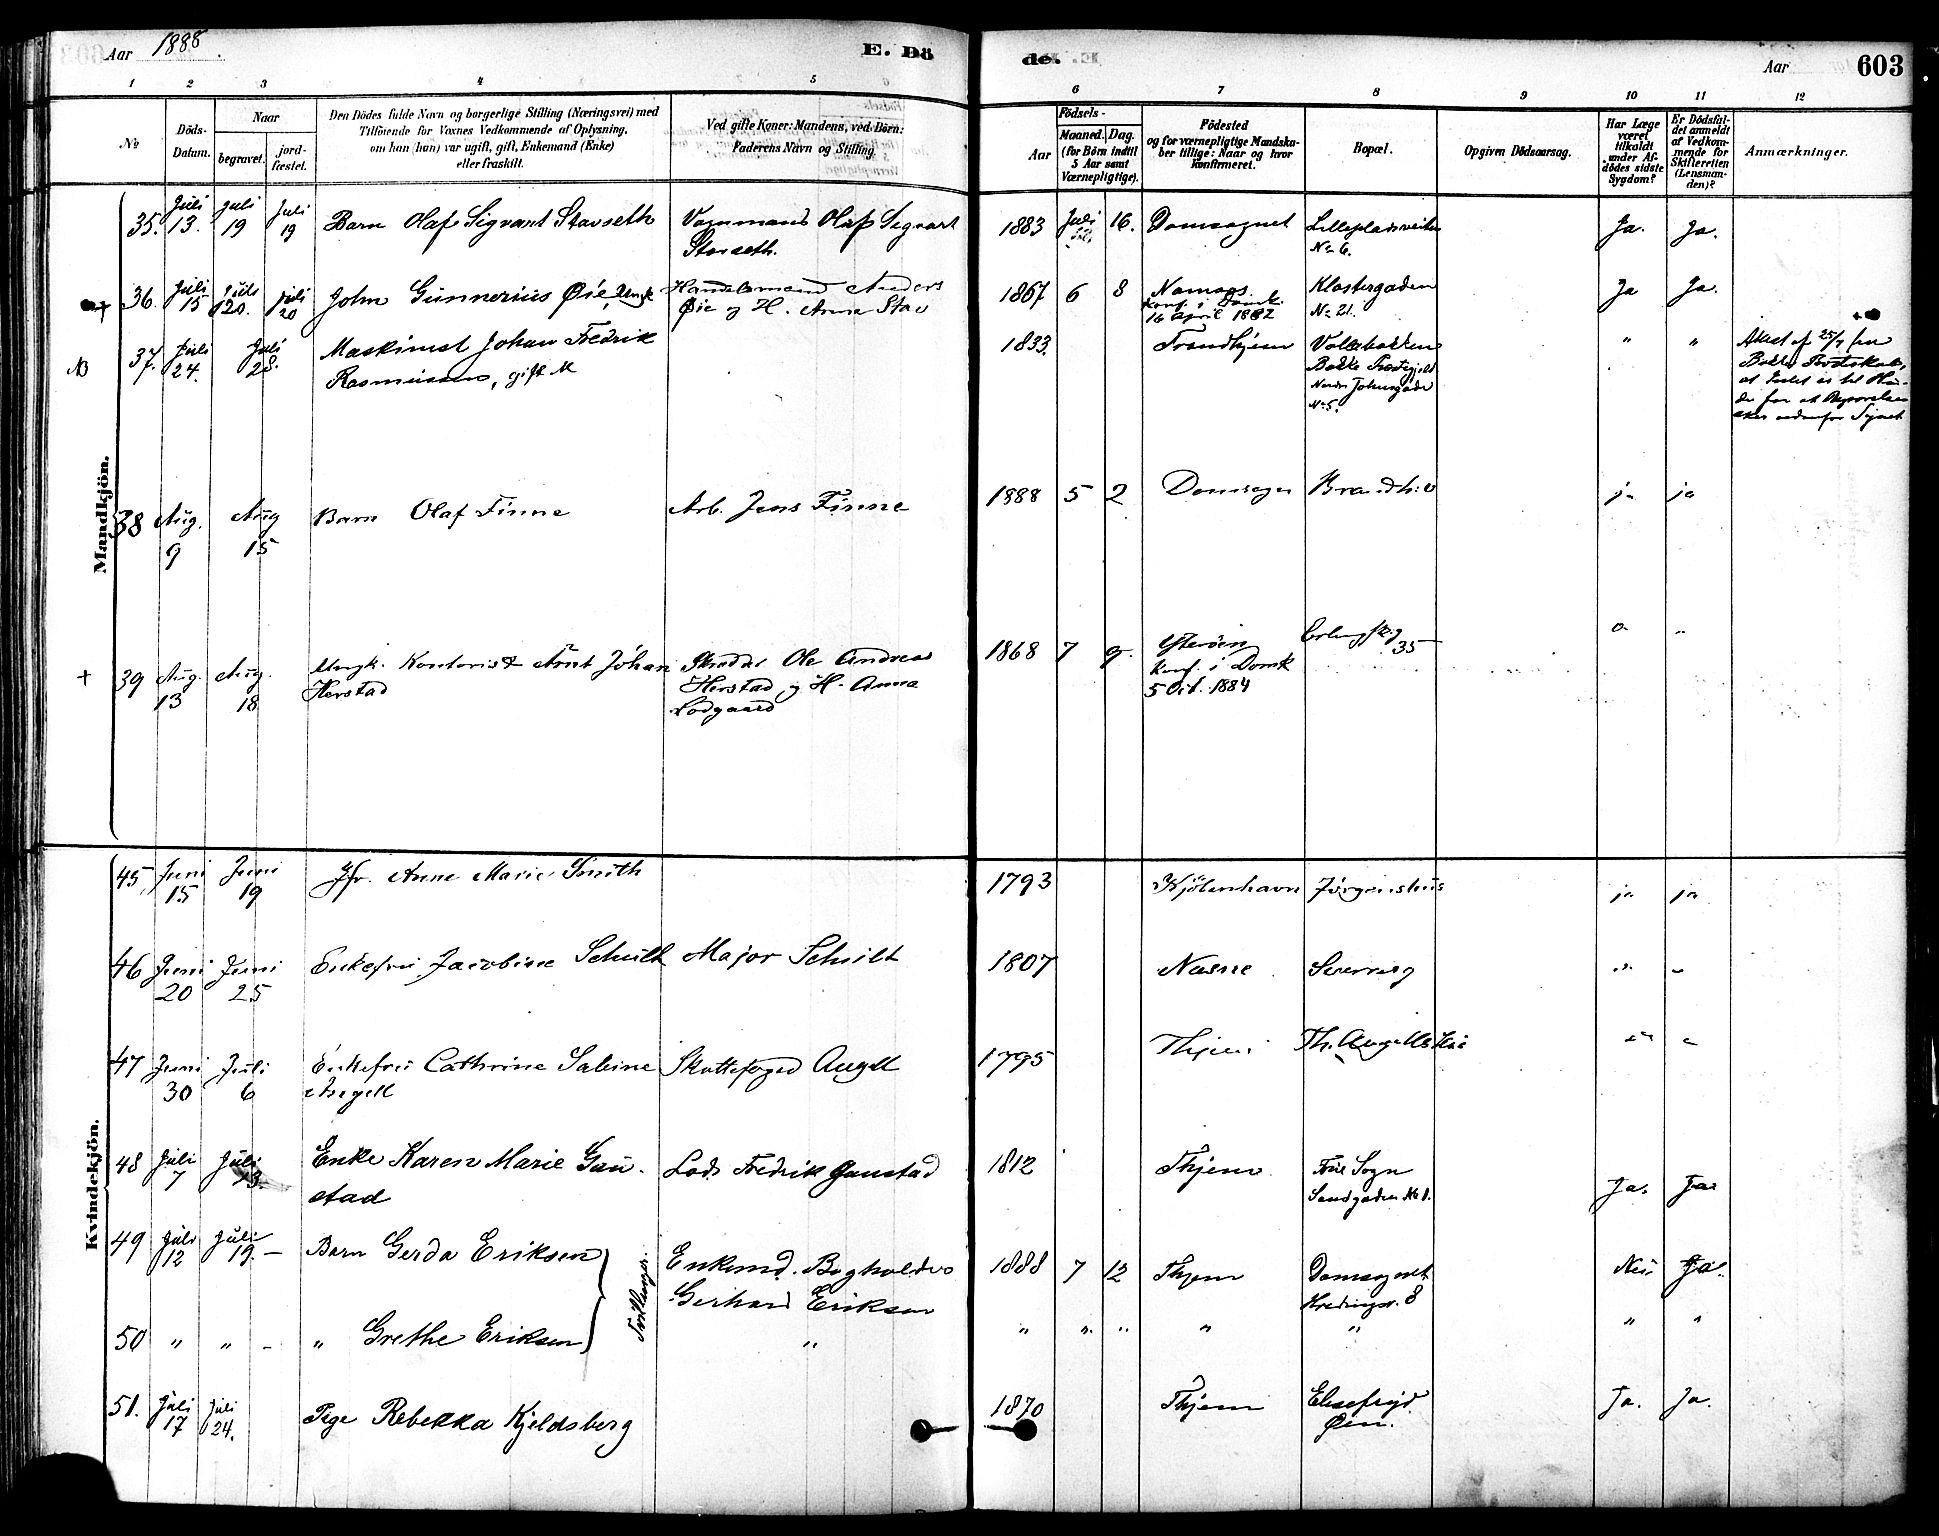 Aar 1888.
E. Dö
de.
Aar
603
1 2 3 4 5 6 7 8 9 10 11 12
No
Döds-
Datum.
Naar
begravet.
jord-
fæstet.
Den Dödes fulde Navn og borgerlige Stilling (Næringsvei) med
Tilföiende for Voxnes Vedkommende af Oplysning,
om han (hun) var ugift, gift, Enkemand (Enke)
eller fraskilt.
Ved gifte Koner: Mandens, ved Börn:
Faderens Navn og Stilling.
Födsels-
Aar
Maaned. Dag.
(for Börn indtil
5 Aar samt
Værnepligtige).
Födested
og for værnepligtige Mandska-
ber tillige: Naar og hvor
konfirmeret.
Bopæl.
Opgiven Dödsaarsag.
Har Læge
været
tilkaldt
under Af-
dödes sidste
Sygdom?
Er Dödsfal-
det anmeldt
af Vedkom-
mende for
Skifteretten
(Lensman-
den)?
Anmærkninger.
Mandkjön.
35. Juli 13. Juli 19 Juli 19 Barn Olaf Sigvart Stavseth Vognmand Olaf Sigvart
Stavseth.
1883 Juli 16. Domsognet
No 6.
Ja. Ja.
36. Juli 15 Juli 20. Juli 20 John Gunnerius Øie, Ungk Handelsmand Anders
Øie og H. Anna Stav
1867 6 8 Namsos
Konf. i Domk.
16 April 1882
Klostergaden
No 21.
Ja Ja.
37. Juli 24. Juli 28. Maskinist Johan Fredrik
Rasmussen, gift M
1833. Trondhjem Vollabakken
Bakke
No 5.
" "
Attest af 25/7 fra
38 Aug. 9 Aug 15 Barn Olaf Finne Arb. Jens Finne
1888 5 2 Domsogn
ja ja
+ 39 Aug. 13 Aug. 18 Ungk. Kontorist Arnt Johan
Herstad
Skrædder Ole Andreas
Herstad og H. Anna
Lodgaard
1868 7 9. Ytterøen
Konf. i Domk
5 Oct. 1884
35
Kvindekjön.
45, Juni 15 Juni 19 Jfr. Anne Marie Smith
1793 Kjöbenhavn Jörgenshus ja ja
46 Juni 20 Juni 25 Enkefru Jacobine Schult Major Schult
1807
47 Juni 30 Juli 6 Enkefru Cathrine Sabine
Angell
Skattefoged Angell
1795 Thjem Th. Angells Hus
48 Juli 7 Juli 13. Enke Karen Marie Gau-
stad
Lods Fredrik Gaustad
1812 Thjem. Frue Sogn
Sandgaden No 1.
Ja. Ja
49 Juli 12 Juli 19. — Barn Gerda Eriksen
Tvillinger.
Enkemd. Bogholder
Gerhard Eriksen
1888 7 12 Thjem Domsognet
8
Nei Ja.
50 " " - " Grethe Eriksen "
" " " " " " "
51. Juli 17 Juli 24. Pige Rebekka Kjeldsberg
1870 Thjem Elsefryd
Øen.
Ja. Ja.